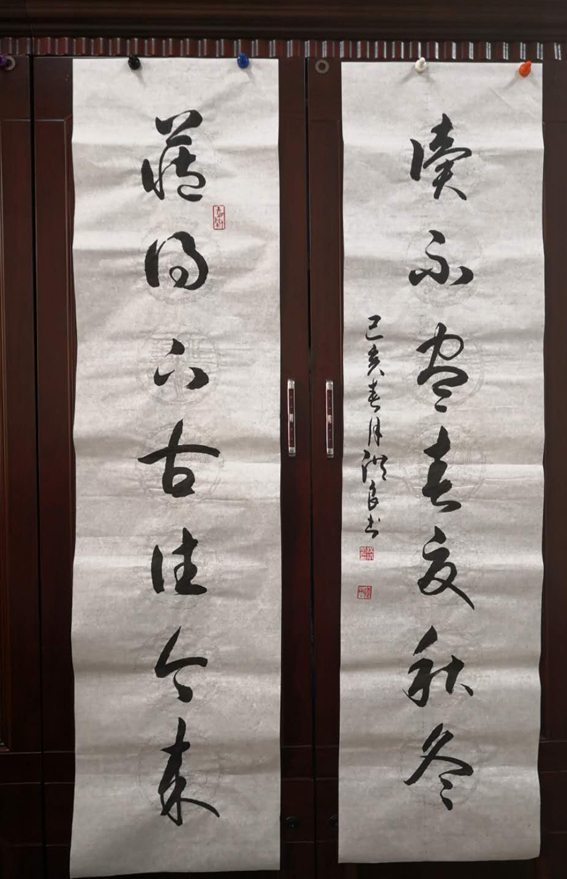 藏得下古往今来
读不尽春夏秋冬
己亥春月洪良书